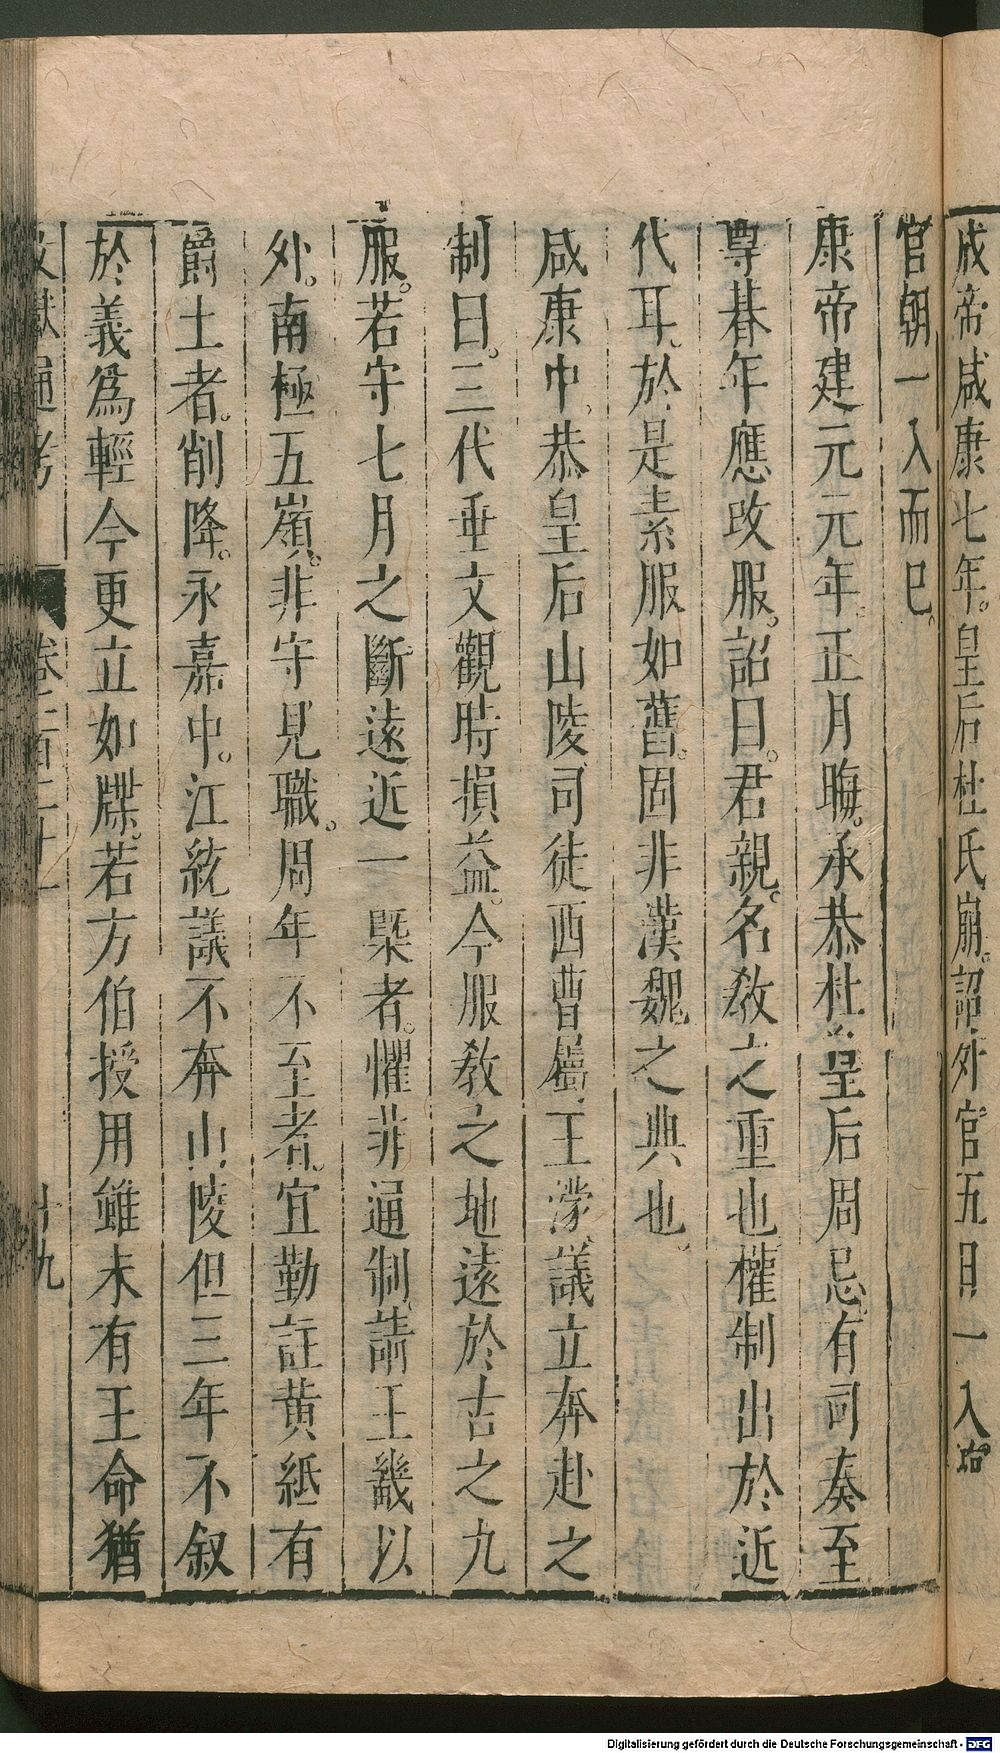 成帝咸康七年。皇后杜氏崩。詔外官五日一入臨
官朝一入而已。
康帝建元元年。正月晦。承恭杜皇后周忌。有司奏至
尊朞年應改服。詔曰。君親。名教之重也。權制出於近
代耳。於是素服如舊。固非漢魏之典也。
咸康中。恭皇后山陵司徒西曹屬王濛議立奔赴之
制曰。三代垂文觀時損益。今服教之地遠於古之九
服。若守七月之斷遠近一槩者。懼非通制。請王畿以
外。南極五嶺。非守見職。周年不至者。宜勤註黃紙有
爵土者。削降。永嘉中。江統議不奔山陵但三年不叙
於義爲輕今更立如牒。若方伯授用雖未有王命猶
文獻通考
卷一百二十一
十九
Digitalisierung gefördert durch die Deutsche Forschungsgemeinschaft - DFG